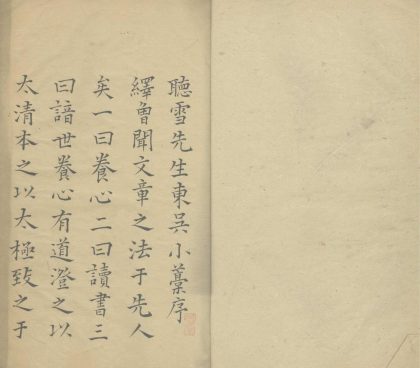 聽雪先生東吳小藁序
繹曾聞文章之法于先人
矣一曰養心二曰讀書三
曰諳世養心有道澄之以
太清本之以太極致之于